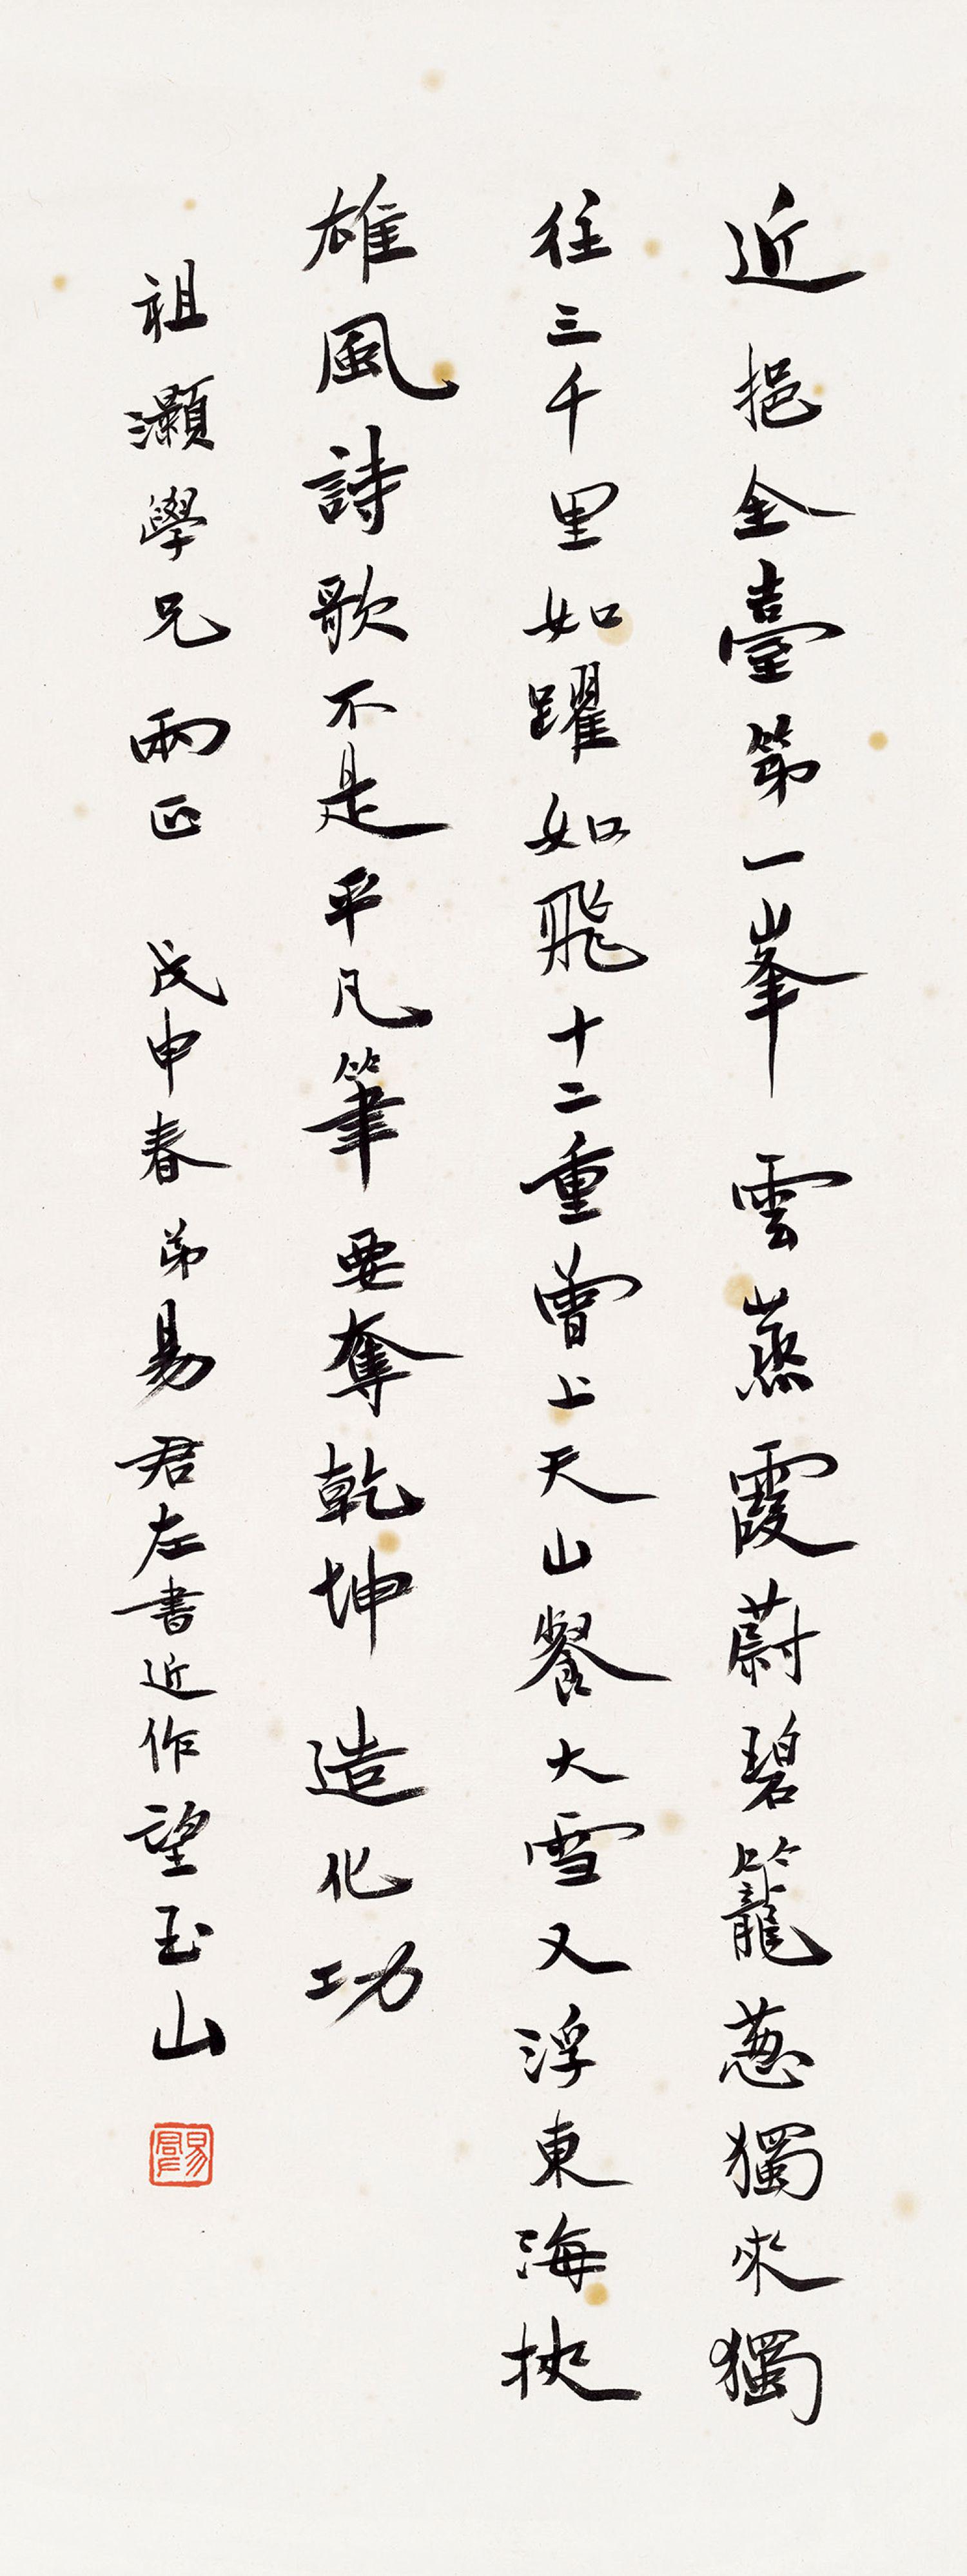 近挹全臺第一峯雲蒸霞蔚碧籠蔥獨來獨
往三千里如躍如飛十二重曾上天山餐大雪又浮東海挾
雄風詩歌不是平凡筆要奪乾坤造化功
祖灝學兄兩正戊申春弟易君左書近作望玉山
易君左